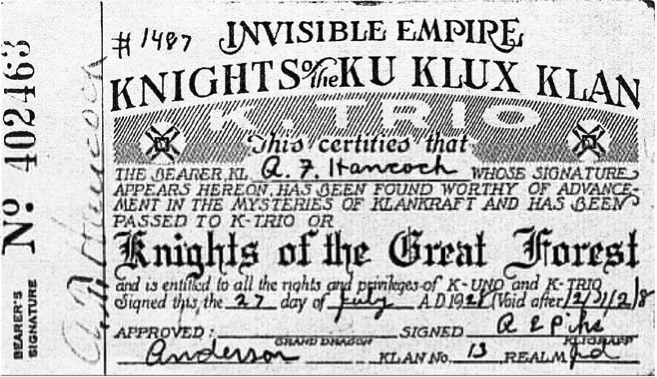 # 1487
INVISIBLE EMPIRE
KNIGHTS of the KU KLUX KLAN
K-TRIO
This certifies that
THE BEARER, KL A. F. Hancock WHOSE SIGNATURE
APPEARS HEREON, HAS BEEN FOUND WORTHY OF ADVANCE-
MENT IN THE MYSTERIES OF KLANKRAFT AND HAS BEEN
PASSED TO K-TRIO OR
Knights of the Great Forest
and is entitled to all the rights and privileges of K-UNO and K-TRIO
Signed this, the 27 day of July A.D. 1928 (Void after 12/31/28
APPROVED: SIGNED A E Pike
GRAND DRAGON KLIGRAPP
Anderson KLAN No. 13 REALM Ind
No 402463
BEARER'S
SIGNATURE